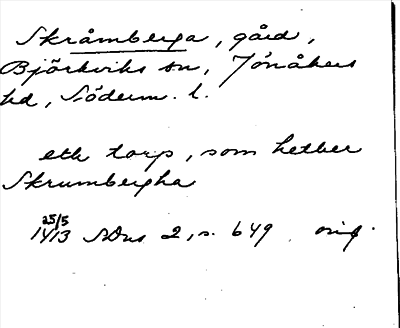 Skråmberga, gård,
Björkviks sn, Jönåkers
hd, Söderm. l.
ett torp, som hetber
Skrumbergha
25/5
1413 SDns 2, s. 649 orig.